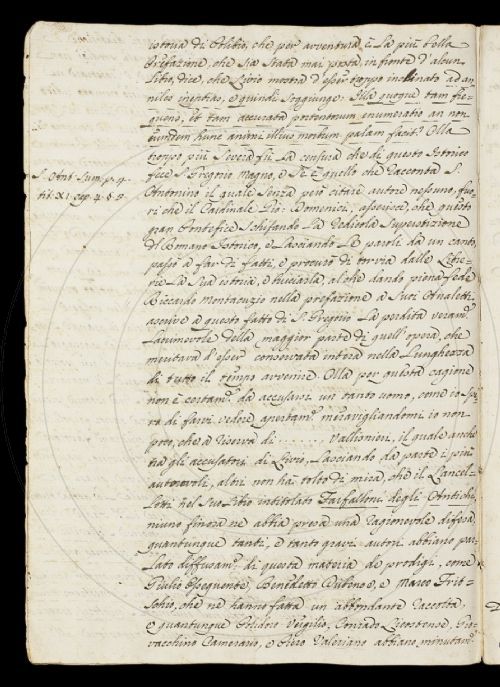 istoria di Polibio, che per avventura è la più bella
Prefazione, che sia stata mai posta in fronte d'alcun
Libro, dice, che Livio mostra d'esser troppo inclinato ad an
niles ineptias, e quindi soggiunge: Illa quoque tam fre-
quens, et tam accurata portentorum enumeratio an non
eumdem hunc animi illius morbum palam facit? Ma
troppo più severa fù la censura che di questo Istorico
fece S. Gregorio Magno, e se è quello che racconta S.
S. Ant. Sum. p. 4.
tit. XI. cap. 4. §. 9.
Antonino il quale senza però citare autore nessuno, fuo-
ri che il Cardinale Gio: Domenici, asserisce, che questo
gran Pontefice schifando la ridicola superstizione
del Romano Istorico, e lasciando le parole da un canto
passò a far di fatti, e procurò di torvia dalle Libre-
rie la sua istoria, e bruciarla, al che dando piena fede
Riccardo Montacuzio nella prefazione a' suoi Analetti
ascrive a questo fatto di S. Gregorio la perdita veram.te
lacrimevole della maggior parte di quell'opera, che
meritava d'esser conservata intera nella lunghezza
di tutto il tempo avvenire. Ma per questa cagione
non è certam.te da accusarsi un tanto uomo, come io spe
ra di farvi vedere apertam.te maravigliandomi io non
poco, che a riserva di ....... Vallisnieri, il quale anche
tra gli accusatori di Livio, lasciando da parte i più
autorevoli, altri non ha tolto di mira, che il Lancel-
lotti nel suo Libro intitolato Farfalloni degli Antichi
niuno finora ne abbia presa una ragionevole difesa
quantunque tanti, e tanto gravi autori abbiano par-
lato diffusam.te di questa materia de prodigi, come
Giulio Ossequente, Benedetto Averoneo, e Marco Frit-
schio, che ne hanno fatta un abbondante raccolta,
e quantunque Polidoro Vergilio, Corrado Licostene, Gio-
vacchino Camerario, e Piero Valeriano abbiano minutam.te